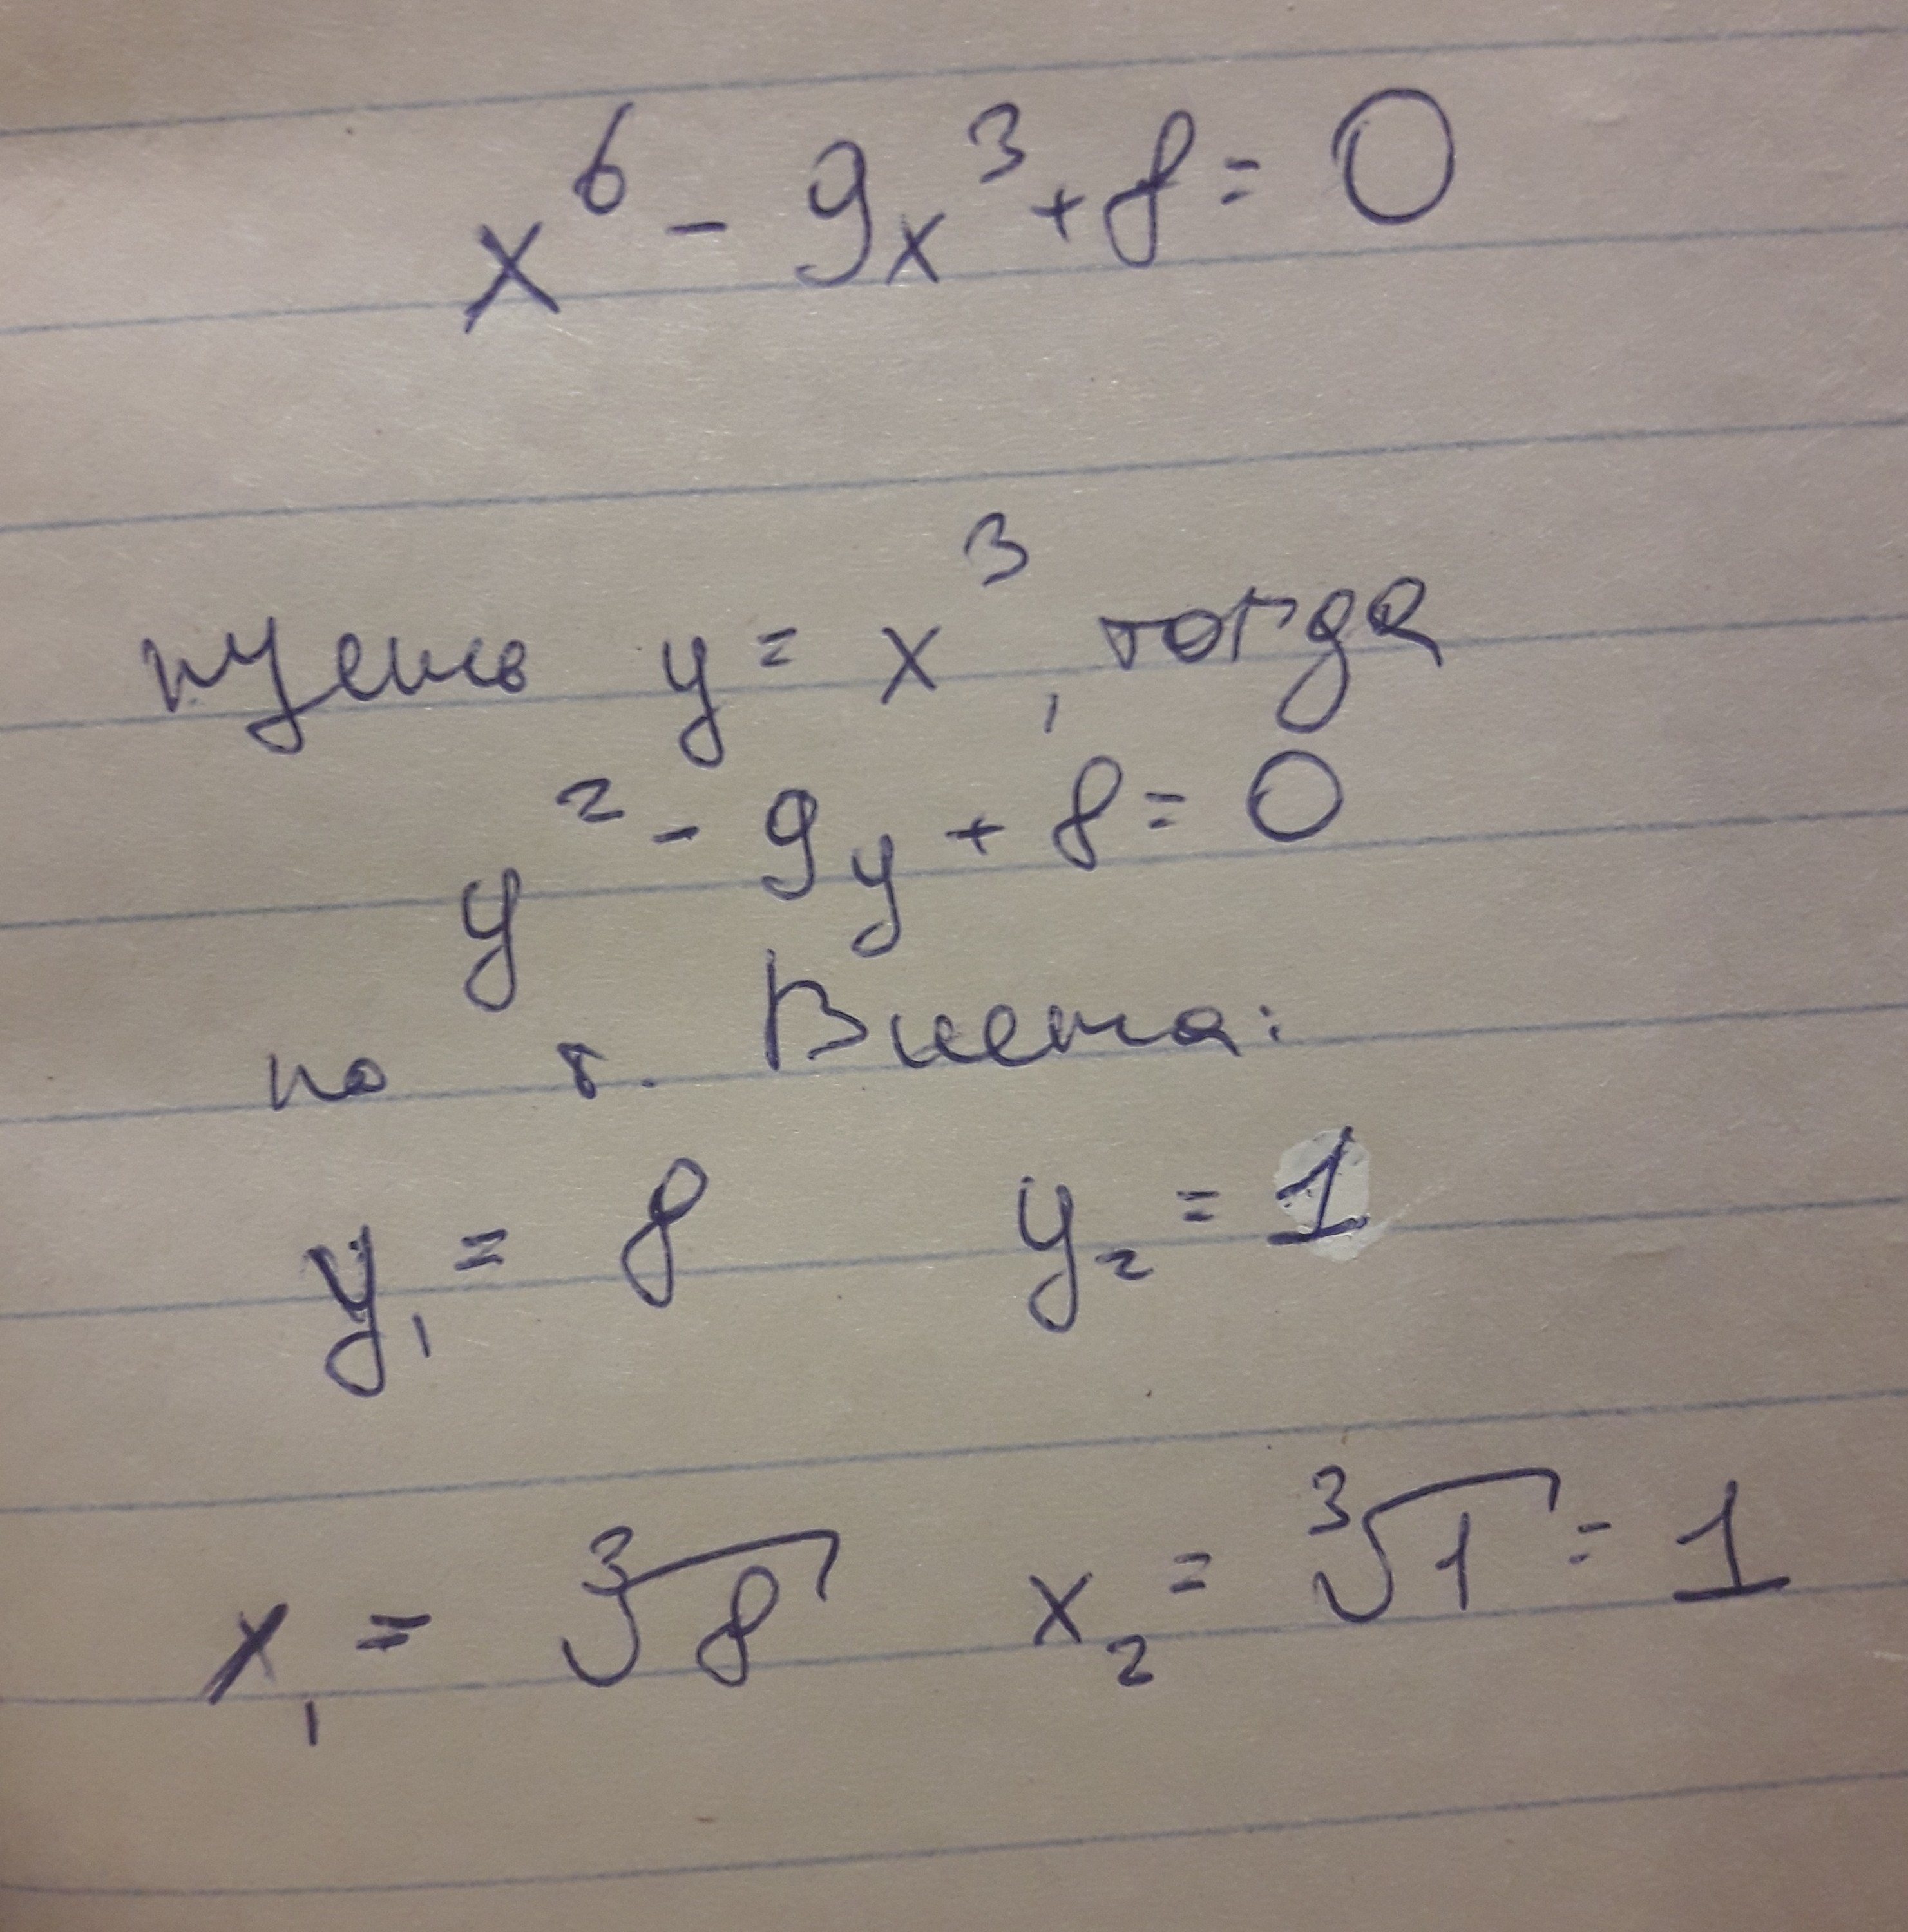 x⁶ - 9x³ + 8 = 0
пусть y = x³, тогда
y² - 9y + 8 = 0
по т. Виета:
y₁ = 8 y₂ = 1
x₁ = ∛8 x₂ = ∛1 = 1